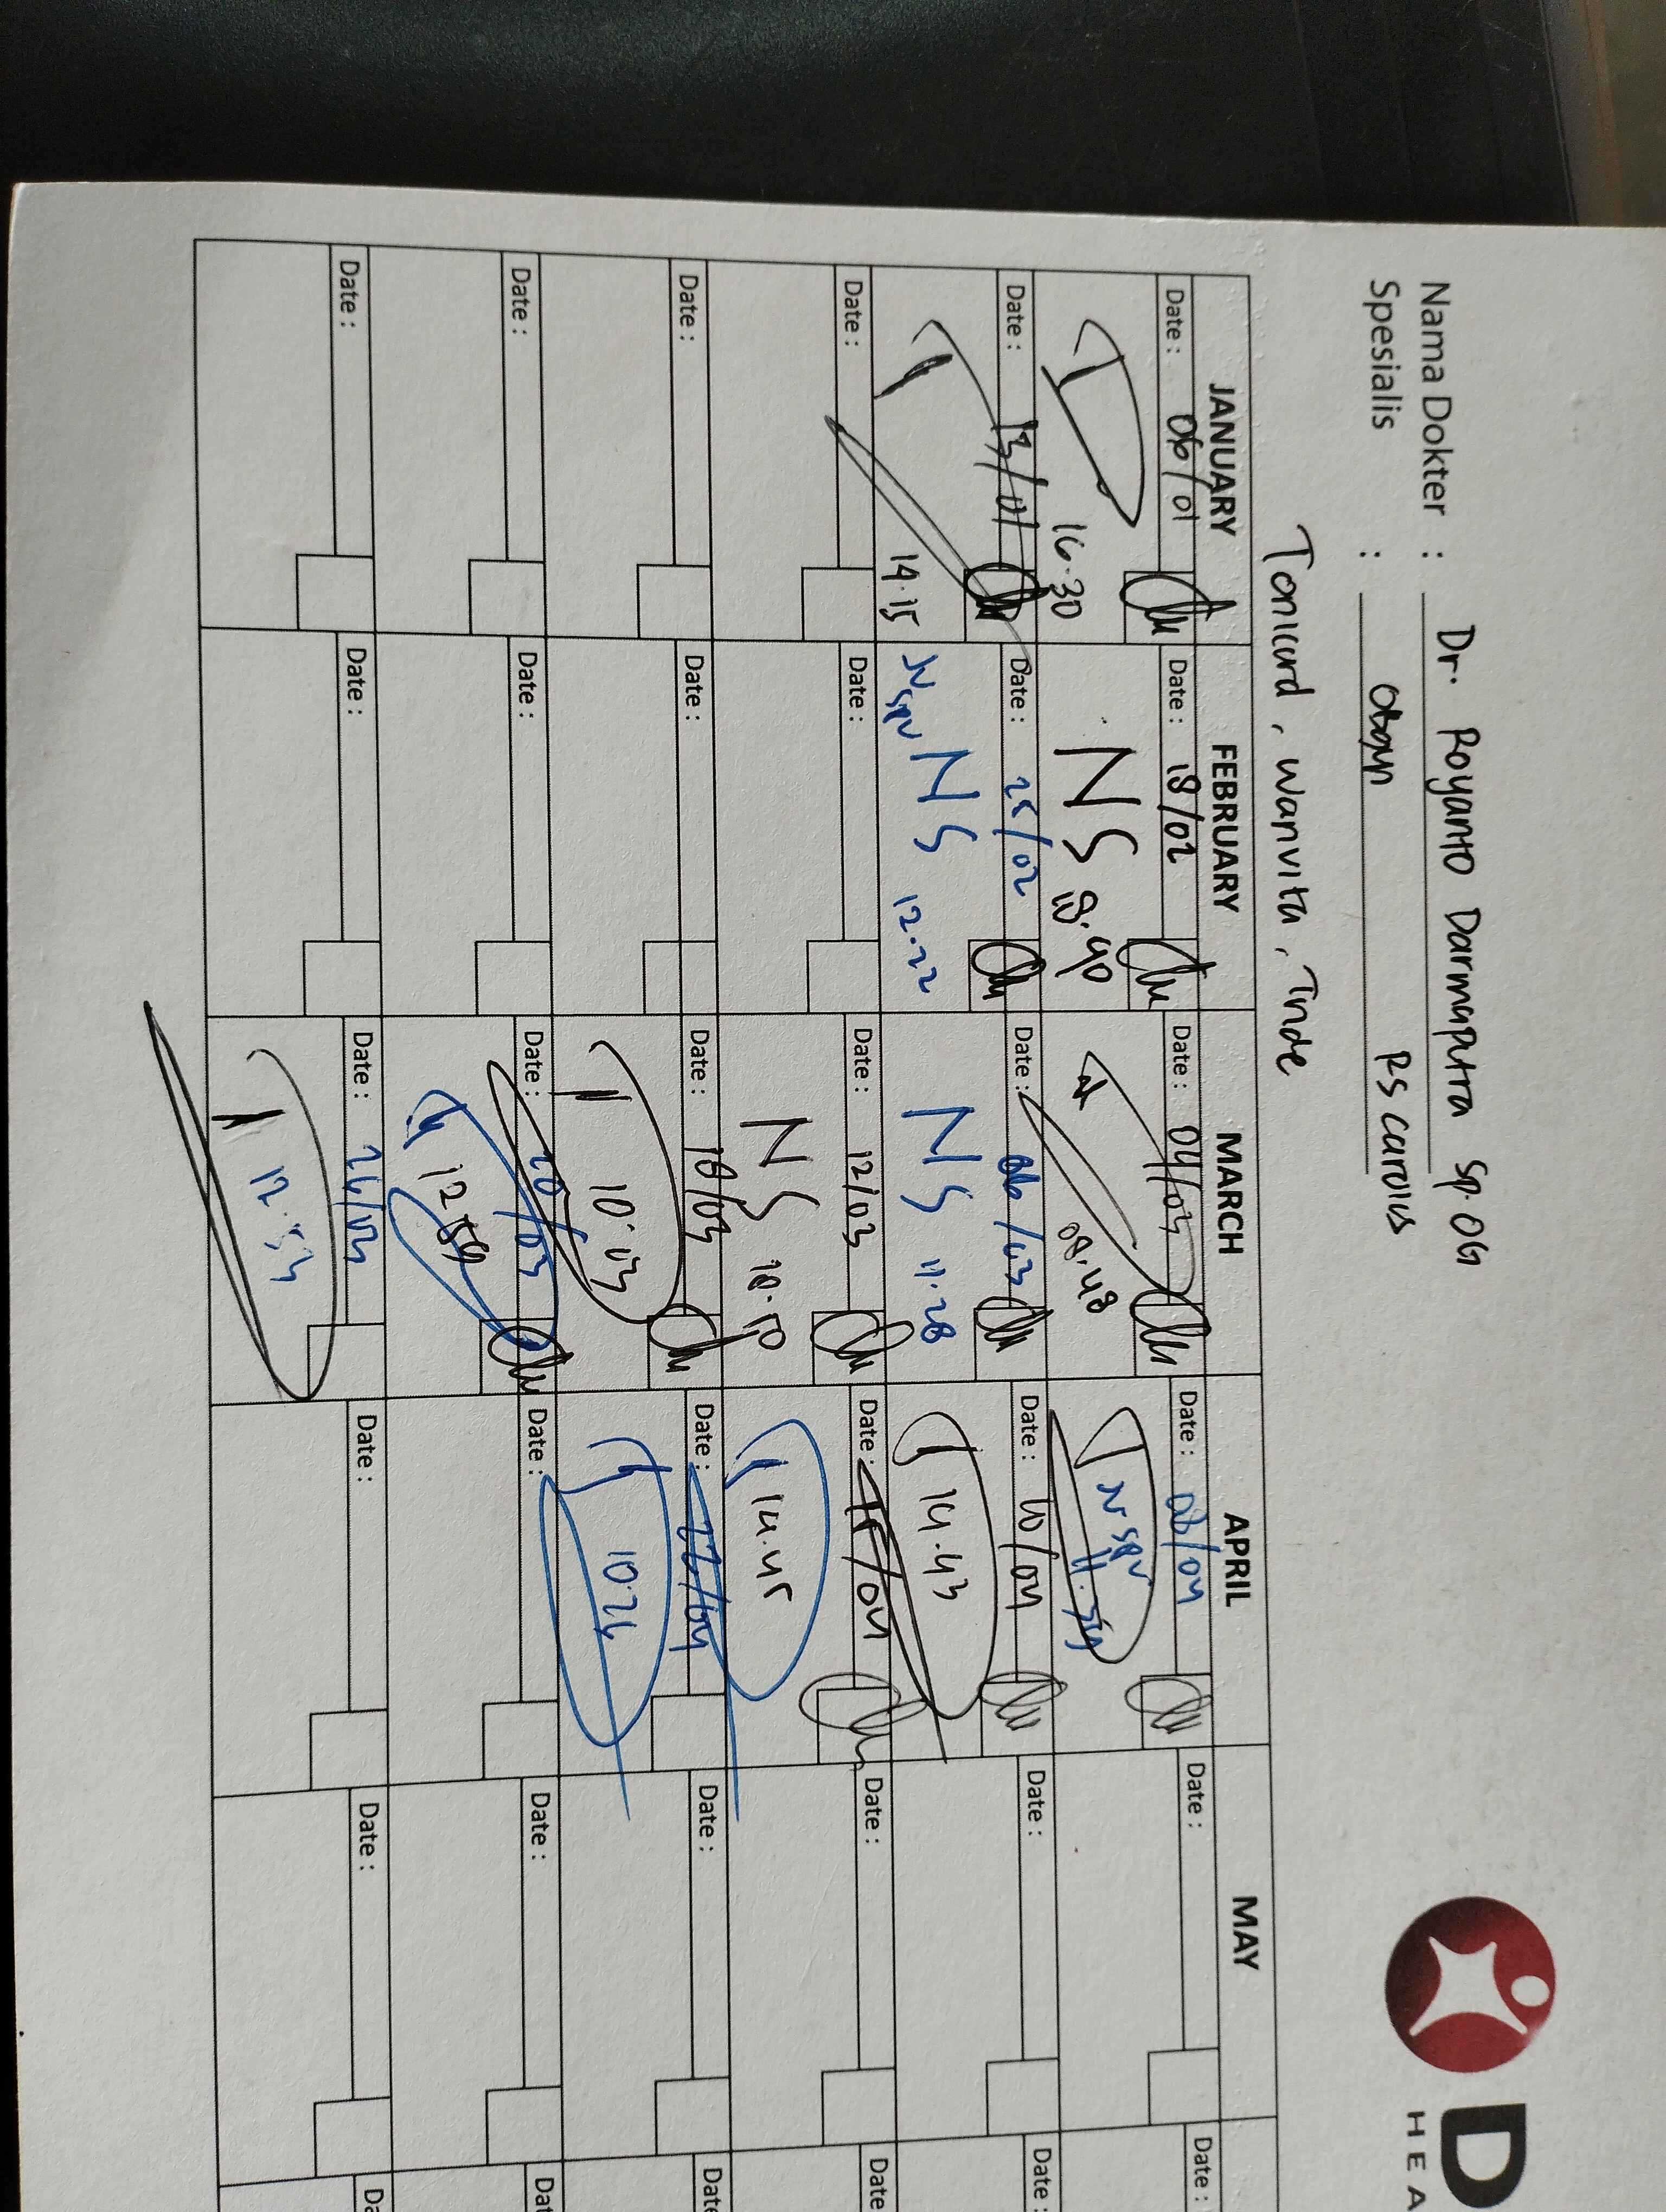 Nama Dokter : Dr. Royanto Darmaputra Sp.OG
Spesialis : Obgyn RS Carolus
D
HEA
Tonicard, Wanvita, Tride
JANUARY FEBRUARY MARCH APRIL MAY
Date : 06/01 Date : 18/02 Date : 04/03 Date : 08/04 Date : Date :
16.30 NS 18.40 08.48 N SPV 11.34
Date : 13/01 Date : 25/02 Date : 06/03 Date : 10/04 Date : Date :
14.15 N SPV NS 12.22 NS 11.28 14.43
Date : Date : Date : 12/03 Date : 15/04 Date : Date
NS 10.50 14.45
Date : Date : Date : 18/03 Date : 22/04 Date : Date
10.03 10.26
Date : Date : Date : 20/03 Date : Date : Dat
12.59
Date : Date : Date : 26/03 Date : Date : Da
12.53